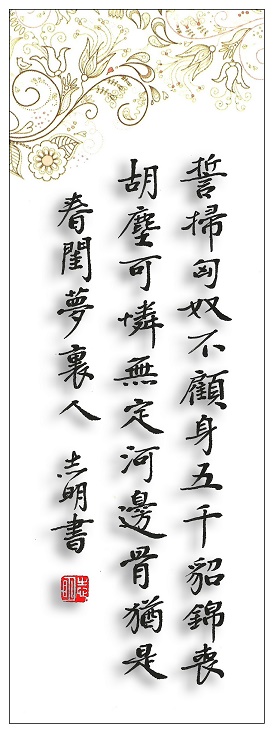 誓掃匈奴不顧身五千貂錦喪
胡塵可憐無定河邊骨猶是
春閨夢裏人 志明書
志明